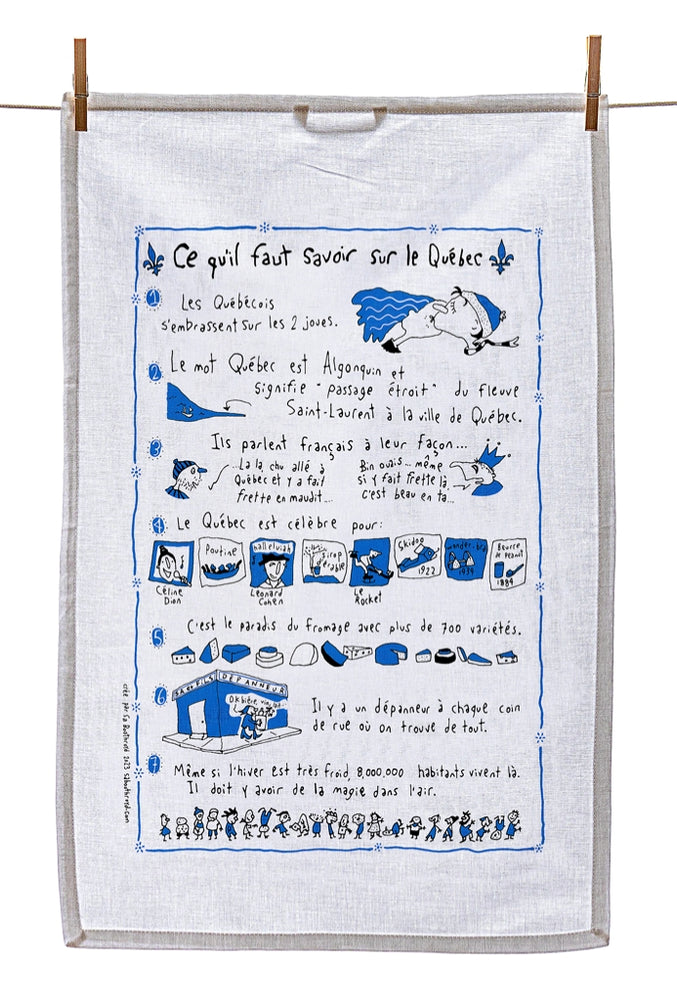 Ce qu'il faut savoir sur le Québec
1
Les Québécois
s'embrassent sur les 2 joues.
2
Le mot Québec est Algonquin et
signifie "passage étroit" du fleuve
Saint-Laurent à la ville de Québec.
3
Ils parlent français à leur façon...
...Là là chu allé à
Québec et y a fait
frette en maudit...
Bin ouais... même
si y fait frette là,
c'est beau en ta...
4. Le Québec est célèbre pour:
Céline
Dion
Poutine
halleluiah
Léonard
Cohen
Sirop
érable
Le
Rocket
Skidoo
1922
wonder-bra
1939
Beurre
de peanut
1884
5
C'est le paradis du fromage avec plus de 700 variétés.
6
FILS DÉPANNEUR
OK bière, vin,
Il y a un dépanneur à chaque coin
de rue où on trouve de tout.
7
Même si l'hiver est très froid, 8,000,000 habitants vivent là.
Il doit y avoir de la magie dans l'air.
créé par 2023